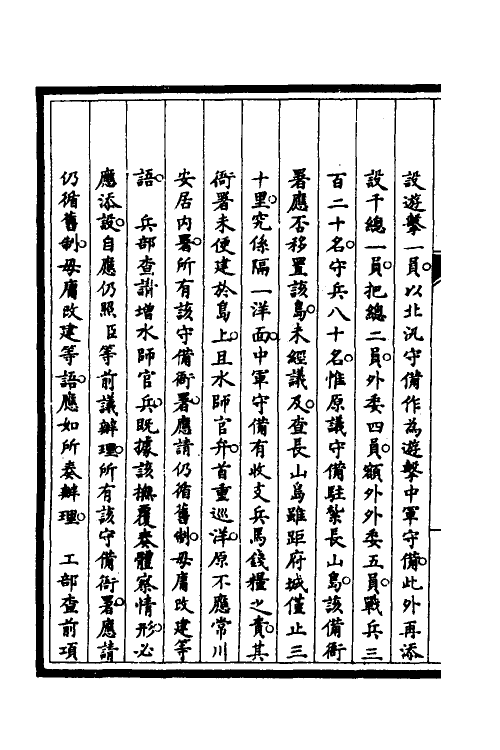 設遊擊一員。以北汛守備作為遊擊中軍守備。此外再添
設千總一員。把總二員。外委四員。額外外委五員。戰兵三
百二十名。守兵八十名。惟原議守備駐紮長山島。該備衙
署應否移置該島。未經議及。查長山島雖距府城僅止三
十里。究係隔一洋面。中軍守備有收支兵馬錢糧之責。其
衙署未便建於島上。且水師官弁。首重巡洋。原不應常川
安居內署。所有該守備衙署。應請仍循舊制。毋庸改建等
語。 兵部查議增水師官兵。既據該撫覆奏體察情形。必
應添設。自應仍照臣等前議辦理。所有該守備衙署。應請
仍循舊制。毋庸改建等語。應如所奏辦理。 工部查前項